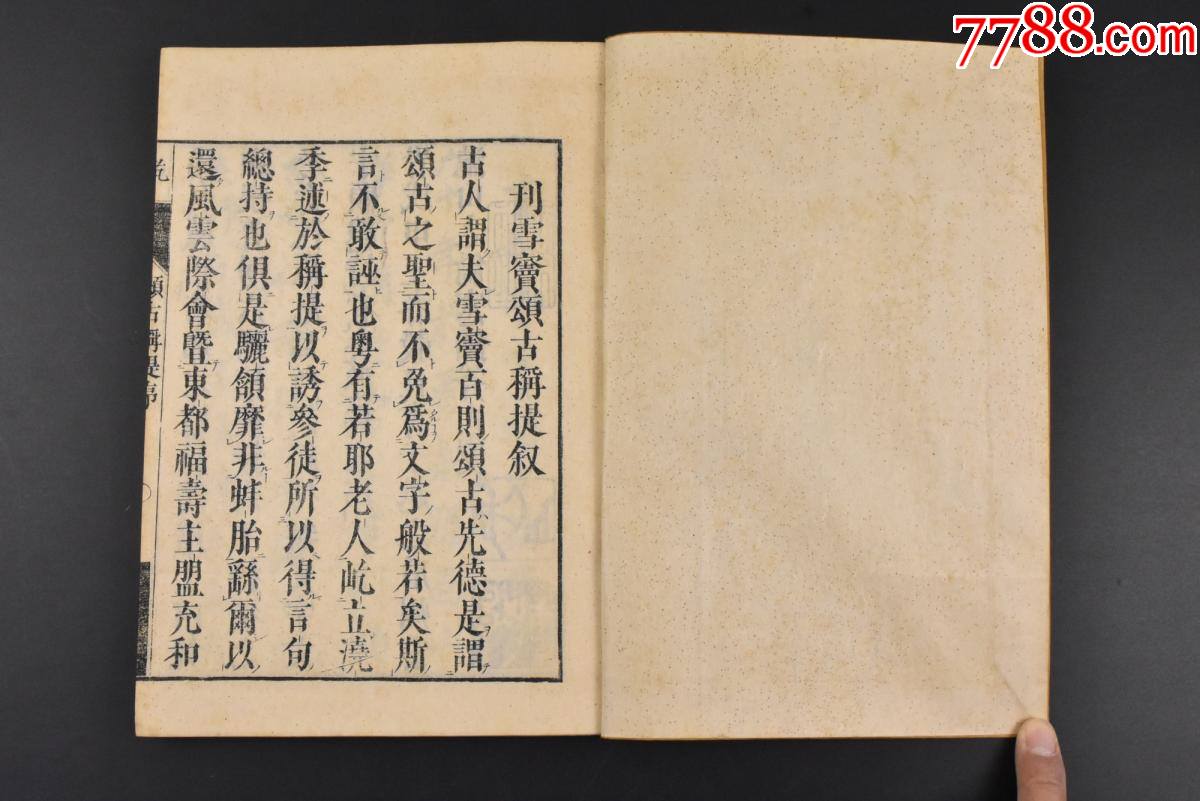 7788.com
刊雪竇頌古稱提叙
古人謂夫雪竇百則頌古先德是謂
頌古之聖而不免爲文字般若矣斯
言不敢誣也粤有若耶老人屹立澆
季述於稱提以誘參徒所以得言句
總持也俱是驪頷靡非蚌胎繇爾以
還風雲際會曁東都福壽主盟充和
頌古稱提序